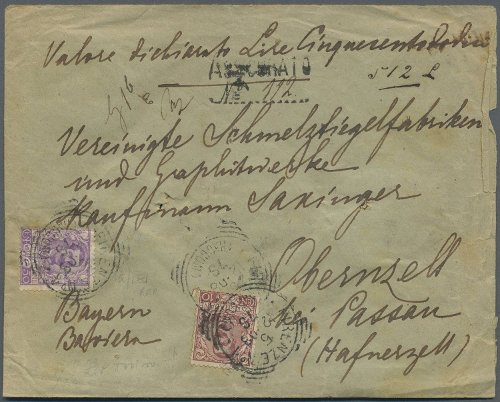 Valore dichiarato Lire Cinquecentododici
ASSICURATO
512 L
No 112
Vereinigte Schmelztiegelfabriken
und Graphitwerke
Kaufmann Saxinger
Obernzell
bei Passau
(Hafnerzell)
Bayern
Baviera